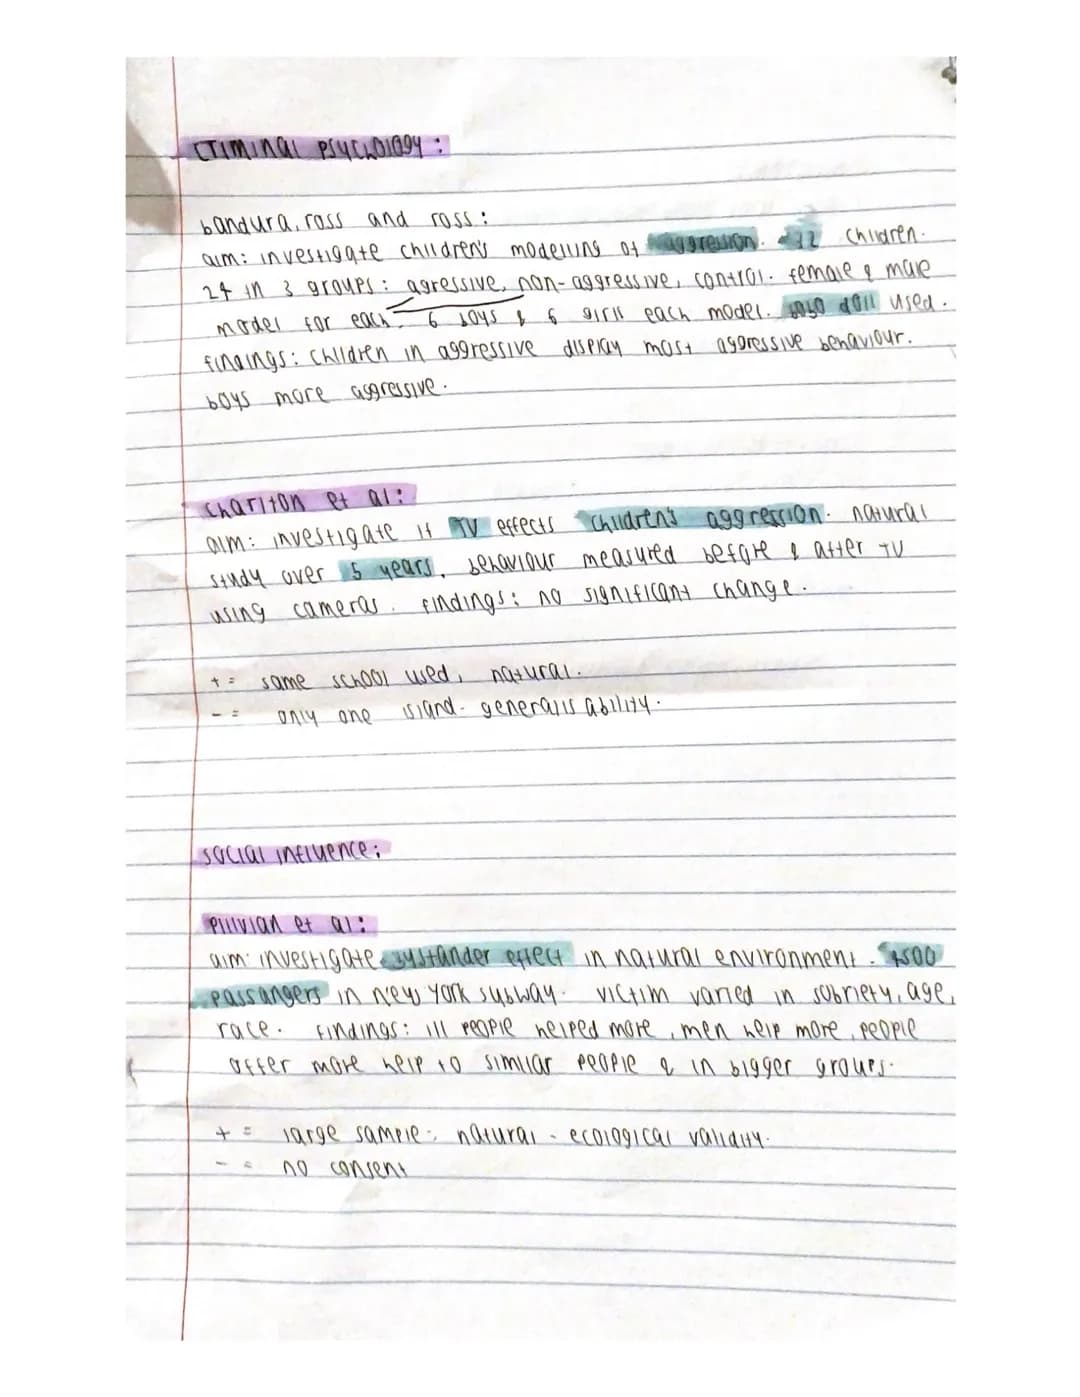 criminal psychology:
bandura, ross and ross:
aim: investigate children's modelling of aggression. 72 children.
24 in 3 groups: agressive, non-aggressive, control. female & male
model for each. 6 boys & 6 girls each model. bobo doll used.
findings: children in aggressive display most aggressive behaviour.
boys more aggressive.
charlton et al:
aim: investigate if TV effects children's aggression. natural
study over 5 years, behaviour measured before & after TV
using cameras. findings: no significant change.
+ = same school used, natural.
- = only one island. generalisability.
social influence:
pilivian et al:
aim: investigate bystander effect in natural environment. 4500
passangers in new york subway. victim varied in sobriety, age,
race. findings: ill people helped more, men help more, people
offer more help to similar people & in bigger groups.
+ = large sample, natural - ecological validity.
- = no consent